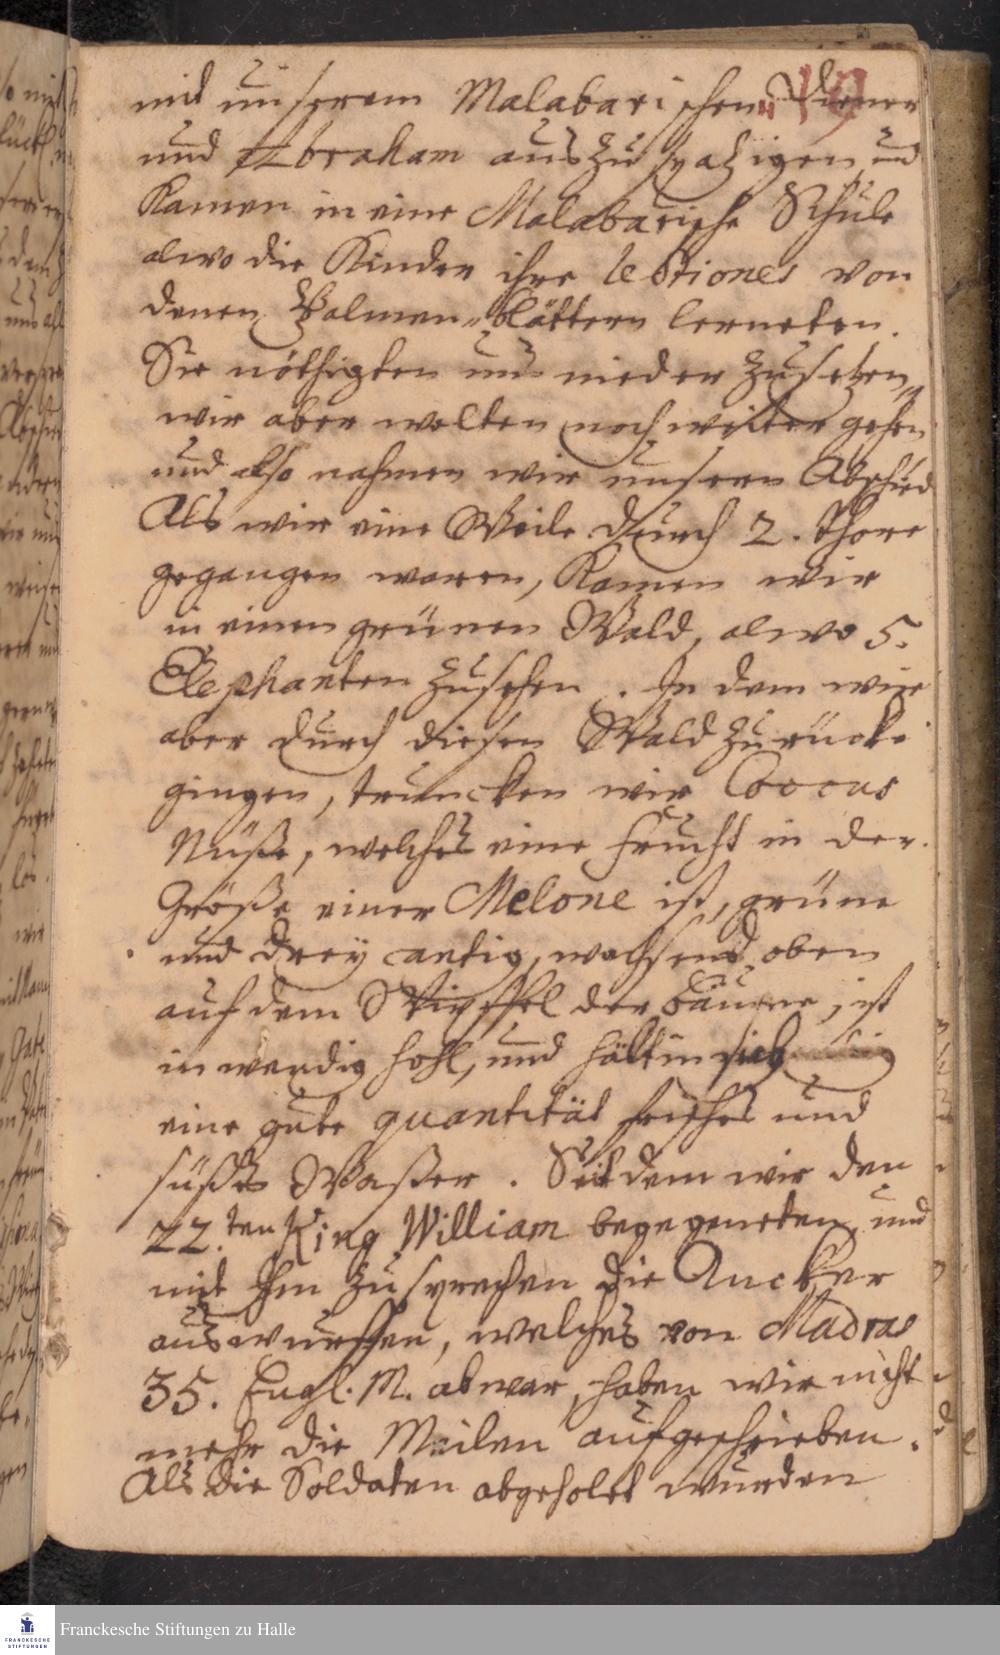 mit unserem Malabarischen Diener
19
und Abraham auszuspatzigen und
Kamen in eine Malabarische Schule
alwo die Kinder ihre lectiones von
denen Palmen-blättern lerneten.
Sie nöthigten uns nieder zusetzen,
wir aber wolten noch weiter gehen
und also nahmen wir unsern Abschied
Als wir eine Weile durch 2. Thore
gegangen waren, Kamen wir
in einen grünen Wald, alwo 5.
Elephanten zusehen. In dem wir
aber durch diesen Wald zurück
gingen, truncken wir Coccus
Nüße, welches eine Frucht in der
Größe einer Melone ist, grüne
und drey cantig, wachsend oben
auf dem Wipffel der bäume, ist
inwendig hohl, und hält in sich
eine gute quantität frisches und
süßes Waßer. Seit dem wir den
22.ten King William begegneten und
mit Ihm zusprechen die Ancker
auswurffen, welches von Madras
35. Engl. M. ab war, haben wir nicht
mehr die Meilen aufgeschrieben.
Als die Soldaten abgeholet wurden
FRANCKESCHE
STIFTUNGEN
Franckesche Stiftungen zu Halle